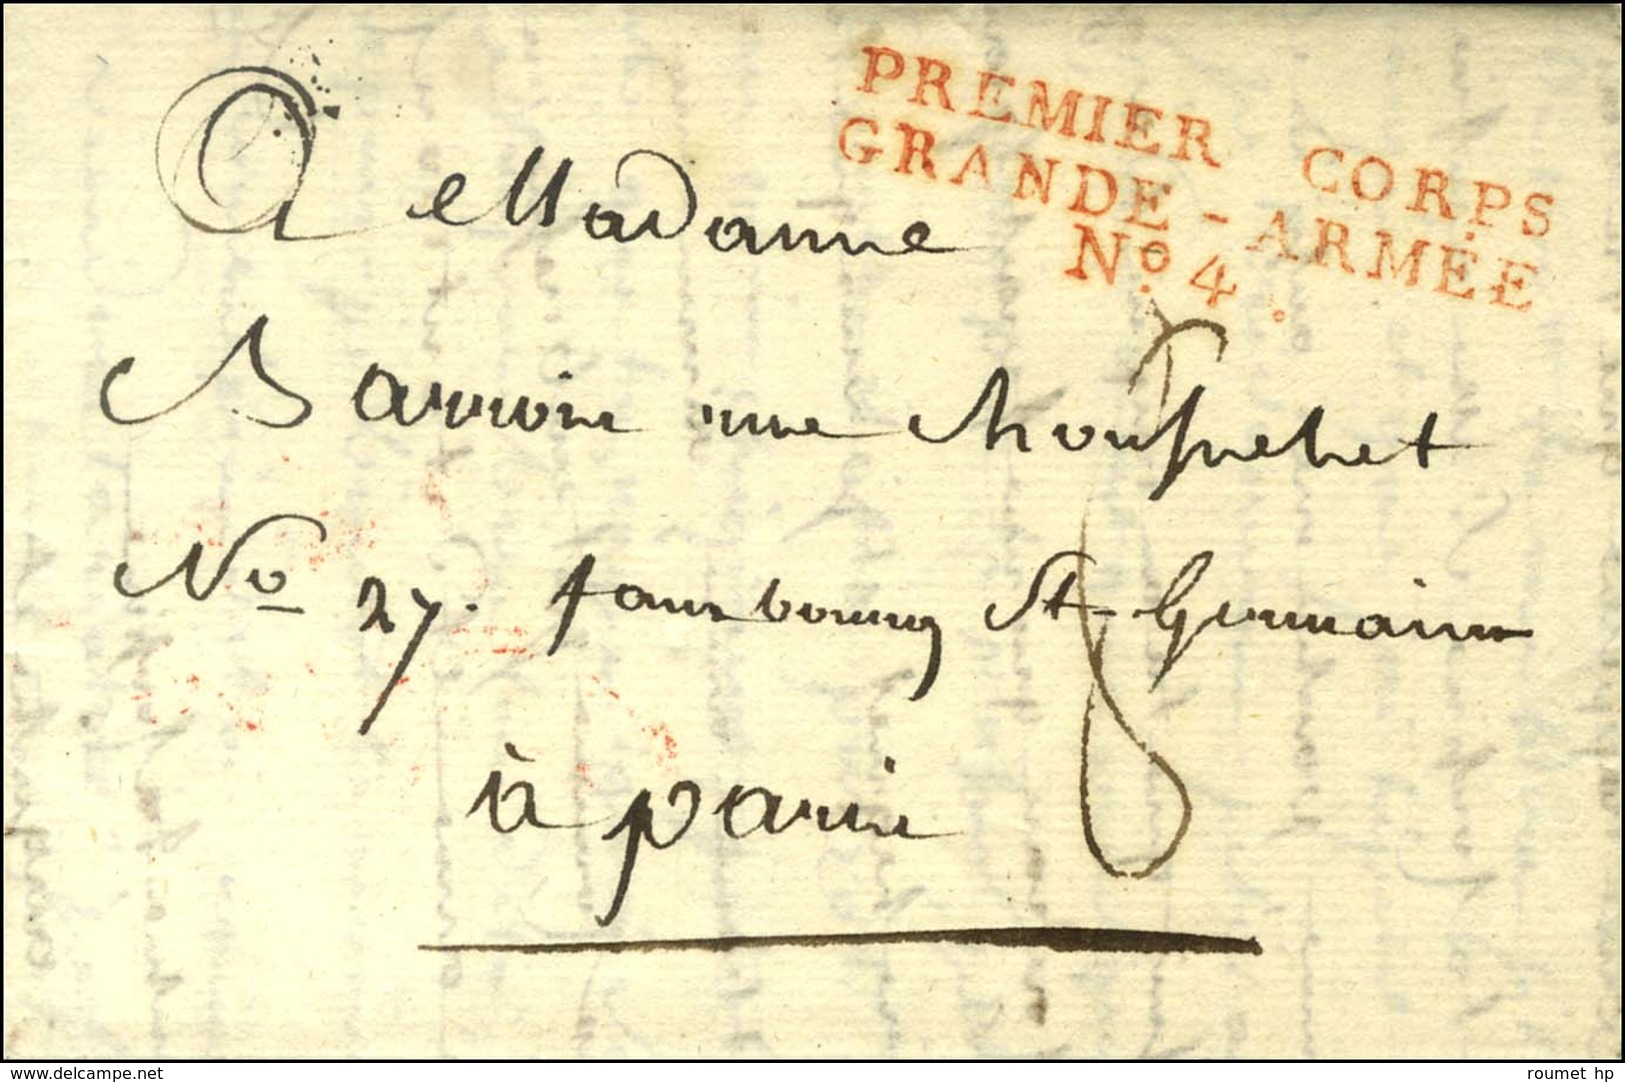 PREMIER CORPS
GRANDE-ARMÉE
Nº 4.
A Madame
Barrois rue Mousses
Nº 27. faurbourg St-Germain
à paris
8
www.delcampe.net
roumet hp